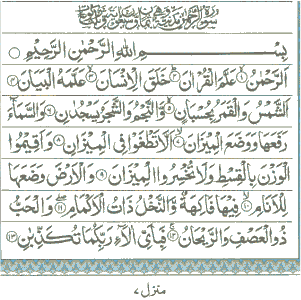 سورة الرحمن مدنية وهي ثمان وسبعون آية
بِسْمِ اللهِ الرَّحْمٰنِ الرَّحِيْمِ
اَلرَّحْمٰنُ ۙ﴿۱﴾ عَلَّمَ الْقُرْاٰنَ ؕ﴿۲﴾ خَلَقَ الْاِنْسَانَ ۙ﴿۳﴾ عَلَّمَهُ الْبَيَانَ ﴿۴﴾
اَلشَّمْسُ وَالْقَمَرُ بِحُسْبَانٍ ۪﴿۵﴾ وَّالنَّجْمُ وَالشَّجَرُ يَسْجُدٰنِ ﴿۶﴾ وَالسَّمَآءَ
رَفَعَهَا وَوَضَعَ الْمِيْزَانَ ۙ﴿۷﴾ اَلَّا تَطْغَوْا فِى الْمِيْزَانِ ﴿۸﴾ وَاَقِيْمُوا
الْوَزْنَ بِالْقِسْطِ وَلَا تُخْسِرُوا الْمِيْزَانَ ﴿۹﴾ وَالْاَرْضَ وَضَعَهَا
لِلْاَنَامِ ۙ﴿۱۰﴾ فِيْهَا فَاكِهَةٌ ۪ۙ وَّالنَّخْلُ ذَاتُ الْاَكْمَامِ ۖ﴿۱۱﴾ وَالْحَبُّ
ذُو الْعَصْفِ وَالرَّيْحَانُ ۚ﴿۱۲﴾ فَبِاَيِّ اٰلَآءِ رَبِّكُمَا تُكَذِّبٰنِ ﴿۱۳﴾
منزل ۷